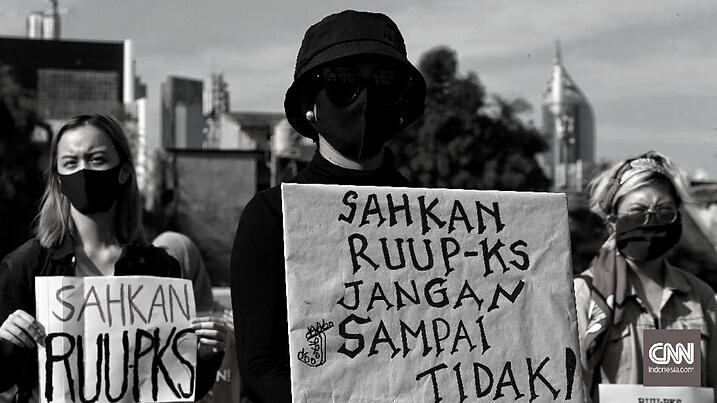 SAHKAN
RUU-PKS
SAHKAN
RUUP-KS
JANGAN
SAMPAI
TIDAK!
CNN
Indonesia.com
RUU-PKS